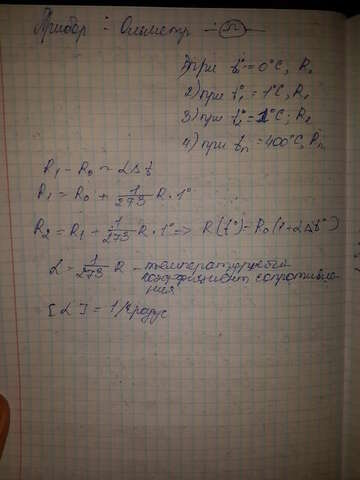 Прибор: Омметр -Ω-
1) при t° = 0°C, R₀
2) при t₁° = 1°C, R₁
3) при t° = 2°C; R₂
4) при tₙ = 400°C, Rₙ
R₁ - R₀ ~ αΔt
R₁ = R₀ + 1/273 R · 1°
R₂ = R₁ + 1/273 R · 1° => R(t°) = R₀(1 - αΔt°)
α = 1/273 R - температурный
коэффициент сопротивле-
ния
[α] = 1/градус